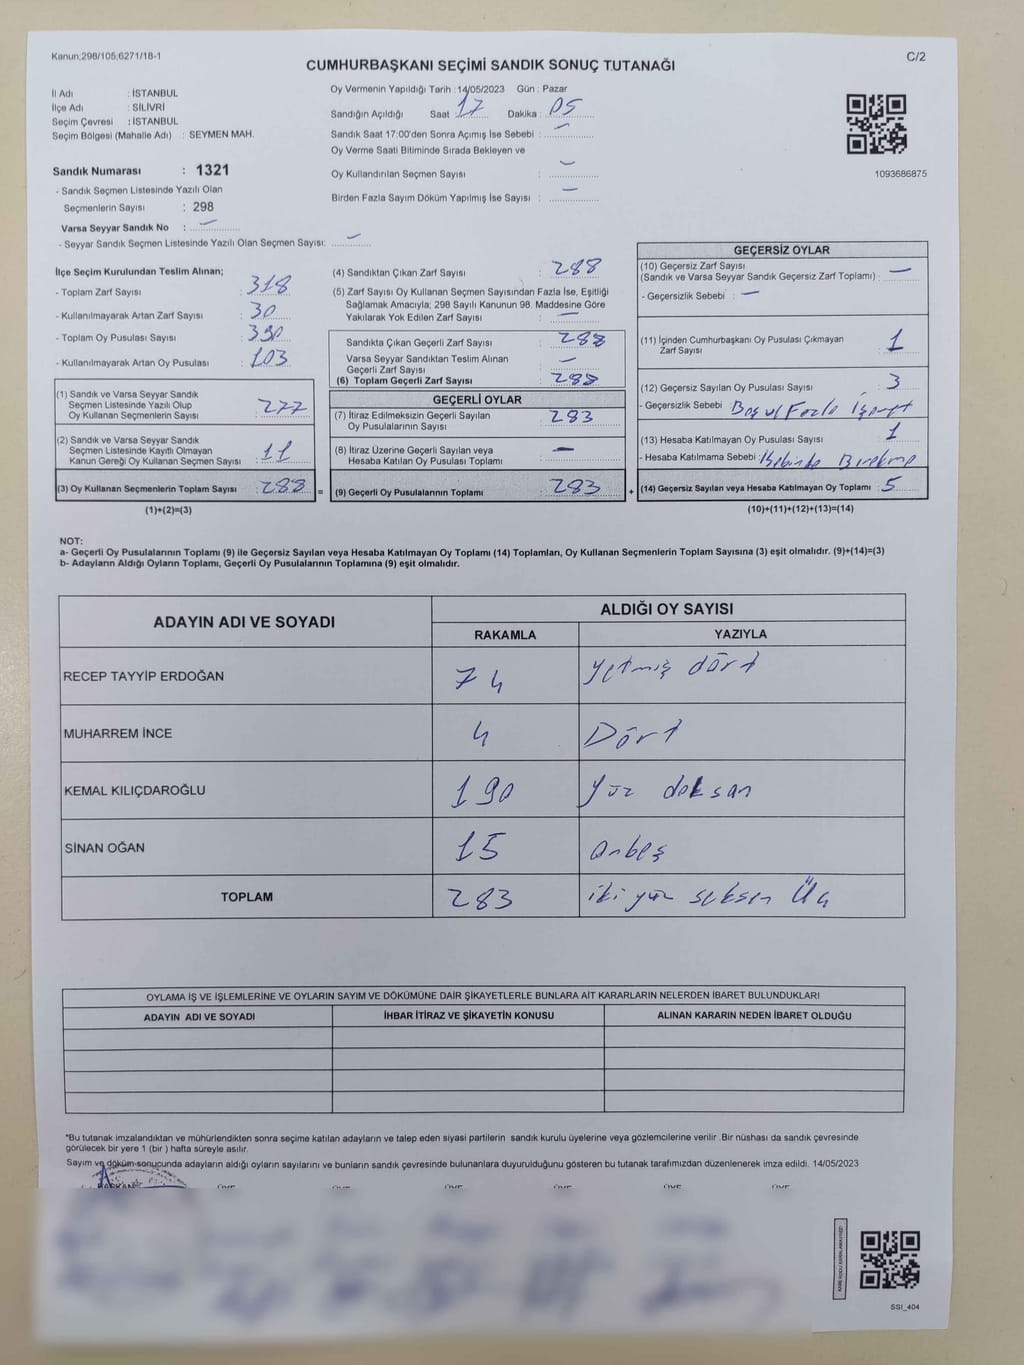 Kanun;298/105;6271/18-1
C/2
CUMHURBAŞKANI SEÇİMİ SANDIK SONUÇ TUTANAĞI
İl Adı : İSTANBUL
İlçe Adı : SİLİVRİ
Seçim Çevresi : İSTANBUL
Seçim Bölgesi (Mahalle Adı) : SEYMEN MAH.
Sandık Numarası : 1321
- Sandık Seçmen Listesinde Yazılı Olan
Seçmenlerin Sayısı : 298
Varsa Seyyar Sandık No : —
- Seyyar Sandık Seçmen Listesinde Yazılı Olan Seçmen Sayısı: —
Oy Vermenin Yapıldığı Tarih :14/05/2023 Gün : Pazar
Sandığın Açıldığı Saat : 17 Dakika : 05
Sandık Saat 17:00'den Sonra Açımış İse Sebebi : —
Oy Verme Saati Bitiminde Sırada Bekleyen ve
Oy Kullandırılan Seçmen Sayısı : —
Birden Fazla Sayım Döküm Yapılmış İse Sayısı : —
1093686875
İlçe Seçim Kurulundan Teslim Alınan;
- Toplam Zarf Sayısı : 318
- Kullanılmayarak Artan Zarf Sayısı : 30
- Toplam Oy Pusulası Sayısı : 390
- Kullanılmayarak Artan Oy Pusulası : 103
(1) Sandık ve Varsa Seyyar Sandık
Seçmen Listesinde Yazılı Olup
Oy Kullanan Seçmenlerin Sayısı : 277
(2) Sandık ve Varsa Seyyar Sandık
Seçmen Listesinde Kayıtlı Olmayan
Kanun Gereği Oy Kullanan Seçmen Sayısı : 11
(3) Oy Kullanan Seçmenlerin Toplam Sayısı : 288
(1)+(2)=(3)
(4) Sandıktan Çıkan Zarf Sayısı : 288
(5) Zarf Sayısı Oy Kullanan Seçmen Sayısından Fazla İse, Eşitliği
Sağlamak Amacıyla; 298 Sayılı Kanunun 98. Maddesine Göre
Yakılarak Yok Edilen Zarf Sayısı : —
Sandıkta Çıkan Geçerli Zarf Sayısı : 288
Varsa Seyyar Sandıktan Teslim Alınan
Geçerli Zarf Sayısı : —
(6) Toplam Geçerli Zarf Sayısı : 288
GEÇERLİ OYLAR
(7) İtiraz Edilmeksizin Geçerli Sayılan
Oy Pusulalarının Sayısı : 283
(8) İtiraz Üzerine Geçerli Sayılan veya
Hesaba Katılan Oy Pusulaları Toplamı : —
= (9) Geçerli Oy Pusulalarının Toplamı : 283
GEÇERSİZ OYLAR
(10) Geçersiz Zarf Sayısı
(Sandık ve Varsa Seyyar Sandık Geçersiz Zarf Toplamı) : —
- Geçersizlik Sebebi : —
(11) İçinden Cumhurbaşkanı Oy Pusulası Çıkmayan
Zarf Sayısı : 1
(12) Geçersiz Sayılan Oy Pusulası Sayısı : 3
- Geçersizlik Sebebi : Boş / Fazla İşaret
(13) Hesaba Katılmayan Oy Pusulası Sayısı : 1
- Hesaba Katılmama Sebebi :
+ (14) Geçersiz Sayılan veya Hesaba Katılmayan Oy Toplamı : 5
(10)+(11)+(12)+(13)=(14)
NOT:
a- Geçerli Oy Pusulalarının Toplamı (9) ile Geçersiz Sayılan veya Hesaba Katılmayan Oy Toplamı (14) Toplamları, Oy Kullanan Seçmenlerin Toplam Sayısına (3) eşit olmalıdır. (9)+(14)=(3)
b- Adayların Aldığı Oyların Toplamı, Geçerli Oy Pusulalarının Toplamına (9) eşit olmalıdır.
ADAYIN ADI VE SOYADI
ALDIĞI OY SAYISI
RAKAMLA YAZIYLA
RECEP TAYYİP ERDOĞAN 74 yetmiş dört
MUHARREM İNCE 4 Dört
KEMAL KILIÇDAROĞLU 190 yüz doksan
SİNAN OĞAN 15 onbeş
TOPLAM 283 iki yüz seksen Üç
OYLAMA İŞ VE İŞLEMLERİNE VE OYLARIN SAYIM VE DÖKÜMÜNE DAİR ŞİKAYETLERLE BUNLARA AİT KARARLARIN NELERDEN İBARET BULUNDUKLARI
ADAYIN ADI VE SOYADI İHBAR İTİRAZ VE ŞİKAYETİN KONUSU ALINAN KARARIN NEDEN İBARET OLDUĞU
*Bu tutanak imzalandıktan ve mühürlendikten sonra seçime katılan adayların ve talep eden siyasi partilerin sandık kurulu üyelerine veya gözlemcilerine verilir .Bir nüshası da sandık çevresinde
görülecek bir yere 1 (bir ) hafta süreyle asılır.
Sayım ve döküm sonucunda adayların aldığı oyların sayılarını ve bunların sandık çevresinde bulunanlara duyurulduğunu gösteren bu tutanak tarafımızdan düzenlenerek imza edildi. 14/05/2023
BAŞKAN ÜYE ÜYE ÜYE ÜYE ÜYE ÜYE
SSI_404